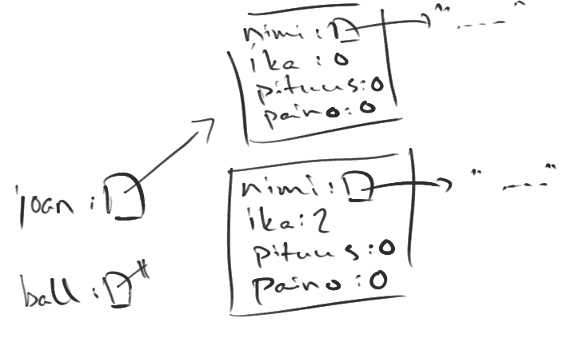 nimi: "----"
ika: 0
pituus: 0
paino: 0
joan:
nimi: "----"
ika: 2
pituus: 0
paino: 0
ball: